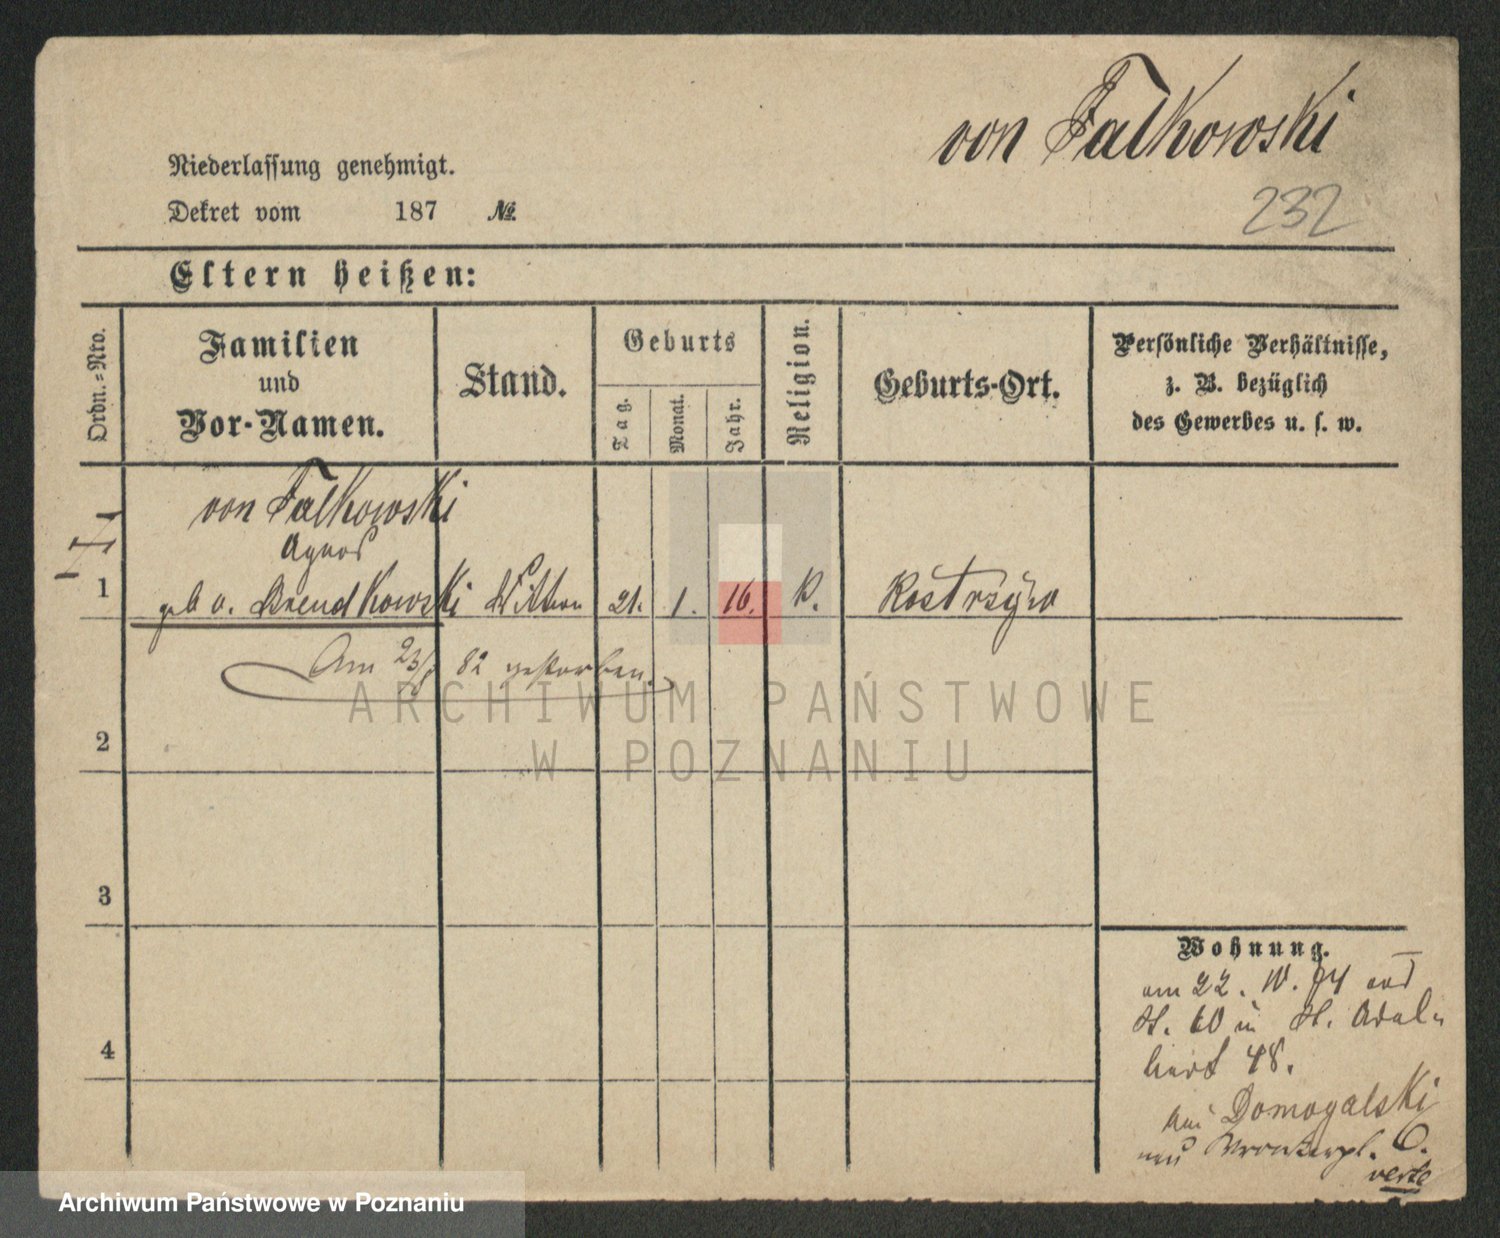 von Falkowski
232
Niederlassung genehmigt.
Dekret vom 187 №
Eltern heißen:
Ordn.=Nro.
Familien
und
Vor-Namen.
Stand.
Geburts
Tag.
Monat.
Jahr.
Religion.
Geburts-Ort.
Persönliche Verhältnisse,
z. B. bezüglich
des Gewerbes u. s. w.
von Falkowski
Agnes
1 geb v. Wittwe 21. 1. 16. K. Kostrzyn
Am 23/ 82 gestorben.
ARCHIWUM PAŃSTWOWE
W POZNANIU
2
3
4
Wohnung.
am 22. IV. 74 aus
St. 60 in St. Adal-
bert 48.
bei Domogalski
Wronkerpl. 6.
verte
Archiwum Państwowe w Poznaniu